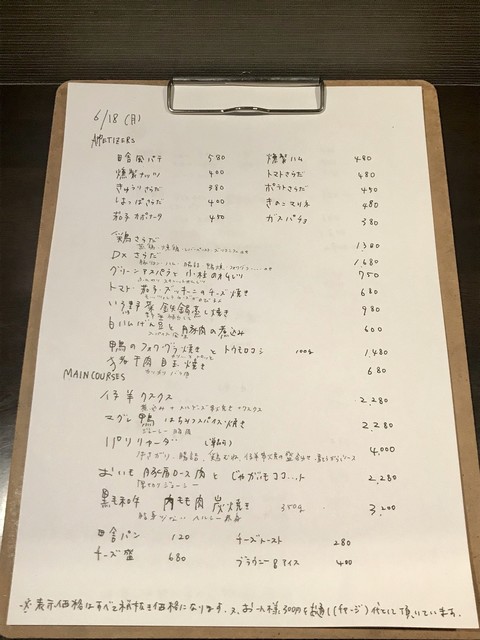 6/18 (月)
APPETIZERS
田舎風パテ 580 燻製ハム 480
燻製ナッツ 400 トマトさらだ 480
きゅうりさらだ 380 ポテトさらだ 450
はっぱさらだ 400 きのこマリネ 480
茄子 450 ガスパチョ 380
さらだ 1300
DXさらだ 1,680
グリーンアスパラと 750
トマト 茄子 ズッキーニのチーズ焼き 680
いろいろ野菜 鉄鍋蒸し焼き 980
白いんげん豆と豚肉の煮込み 600
鴨のフォアグラ焼きとトウモロコシ 1,480
目玉焼き 680
MAIN COURSES
仔羊クスクス 2,280
マグレ鴨 はちみつスパイス焼き 2,280
パリリャーダ 4,000
おいも豚肩ロース肉とじゃがいもココット 2,280
厚切りジューシー
黒毛和牛 内もも肉 炭焼き 350g 3,200
田舎パン 120 チーズトースト 280
チーズ盛 680 ブラウニー&アイス 400
※表示価格はすべて税抜き価格になります。又、お一人様300円を お通し(チャージ)代として頂いています。